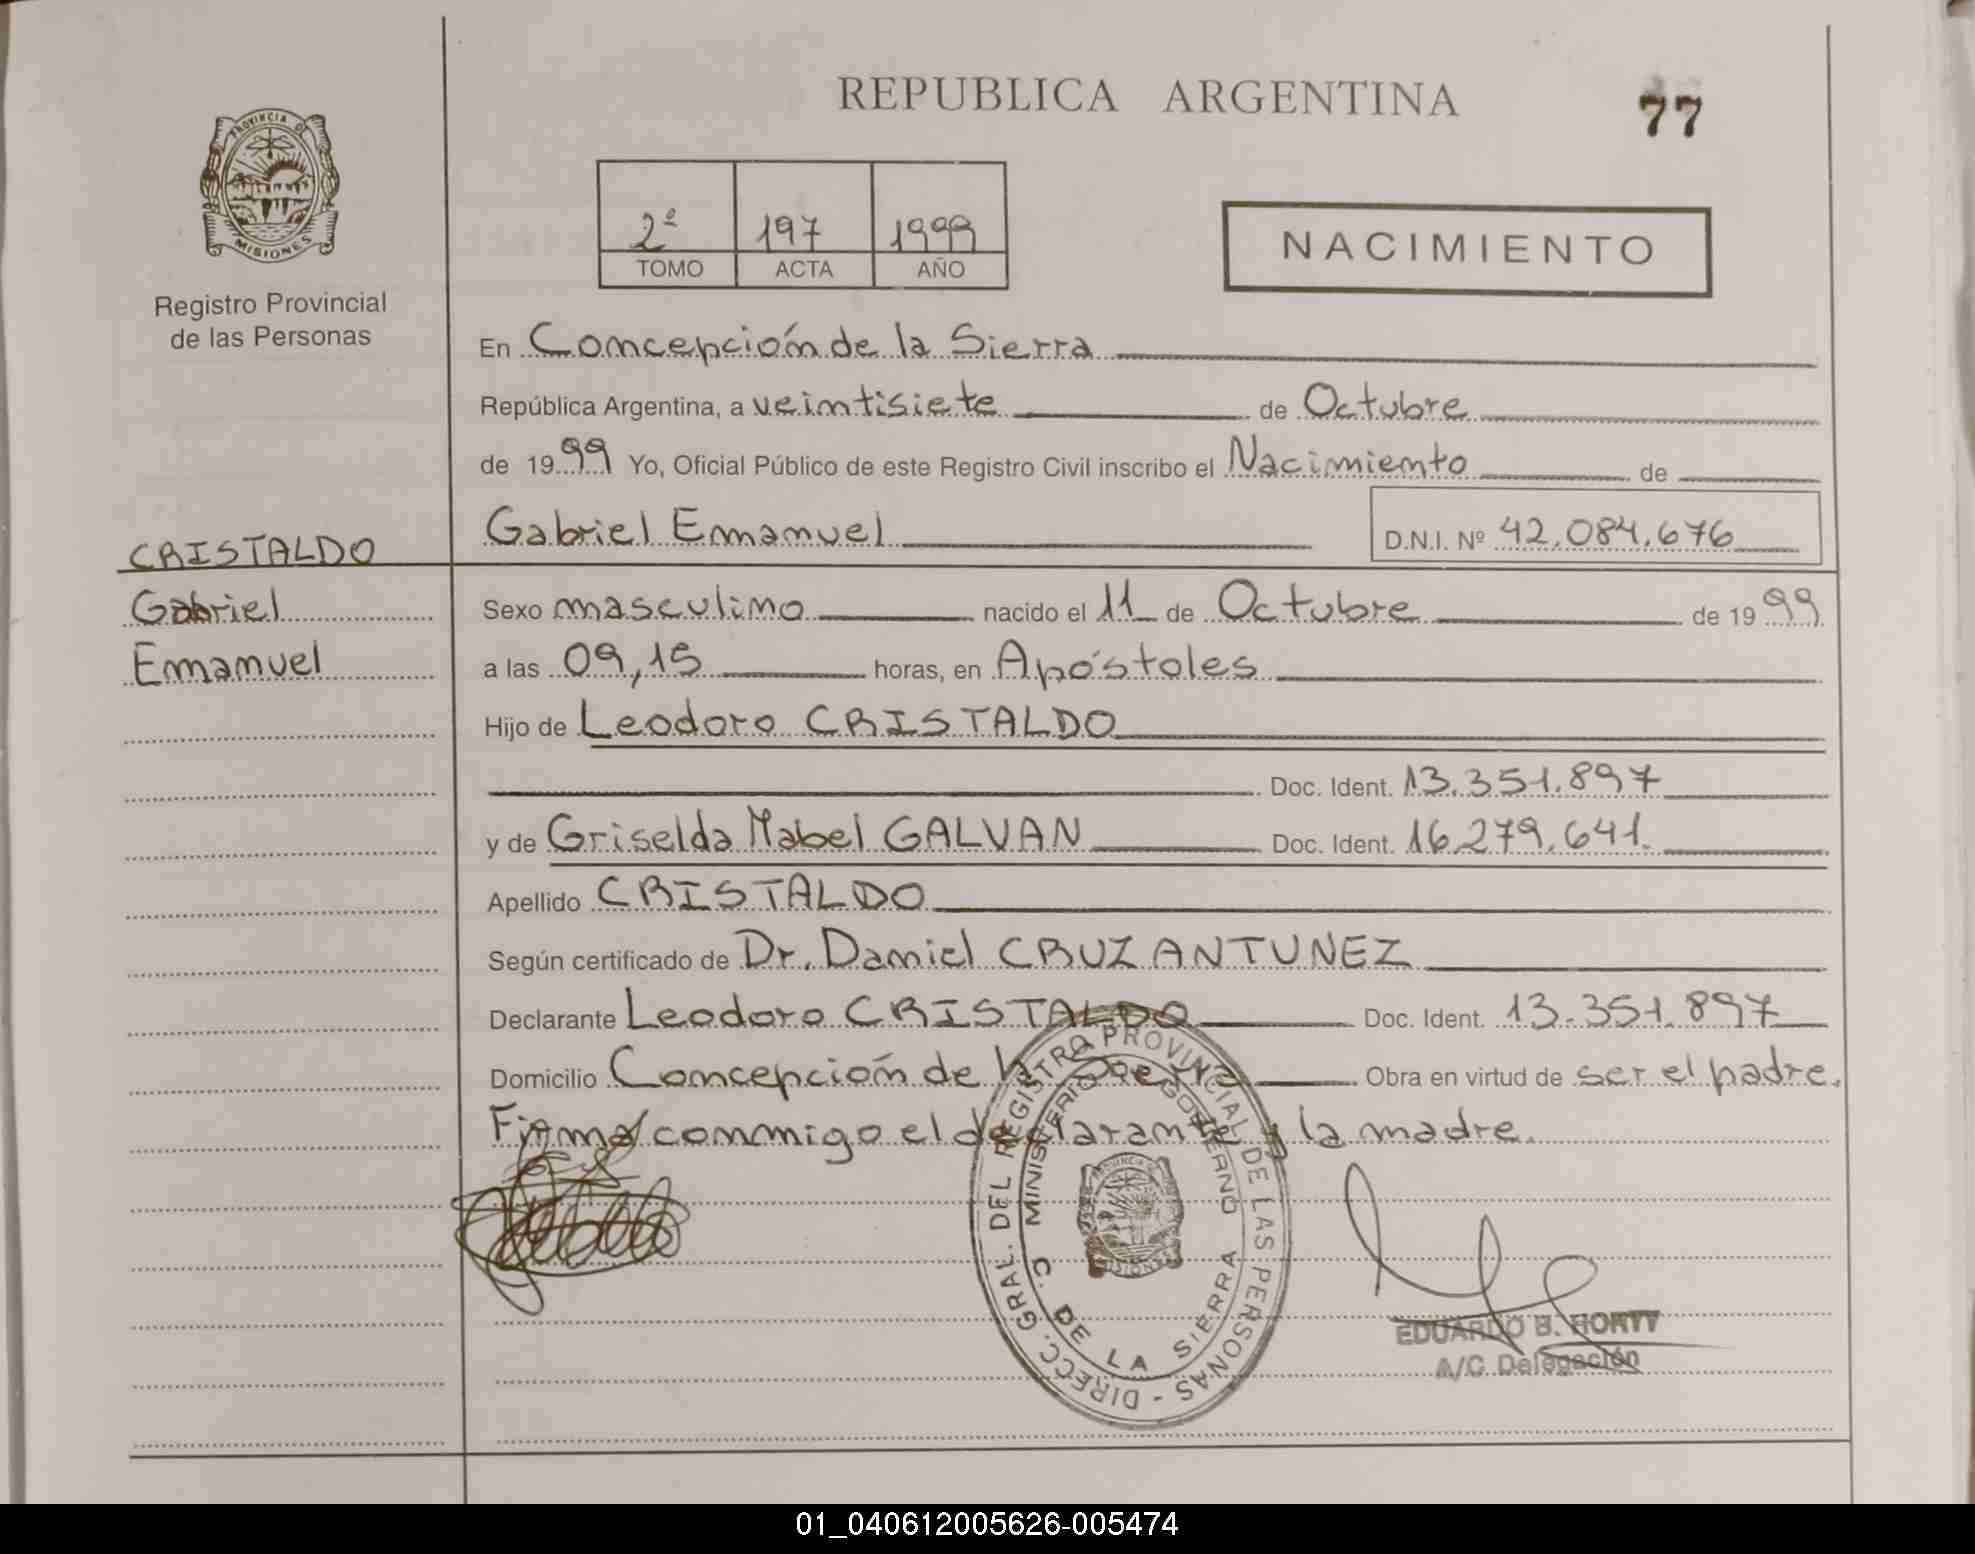 REPUBLICA ARGENTINA
77
PROVINCIA DE
MISIONES
Registro Provincial
de las Personas
2º 197 1999
TOMO ACTA AÑO
NACIMIENTO
En Concepción de la Sierra
República Argentina, a veintisiete de Octubre
de 1999 Yo, Oficial Público de este Registro Civil inscribo el Nacimiento de
Gabriel Emanuel D.N.I. Nº 42.084.676
CRISTALDO
Gabriel
Emanuel
Sexo masculino nacido el 11 de Octubre de 1999
a las 09,15 horas, en Apóstoles
Hijo de Leodoro CRISTALDO
Doc. Ident. 13.351.897
y de Griselda Mabel GALVAN Doc. Ident. 16.279.641.
Apellido CRISTALDO
Según certificado de Dr. Daniel CRUZ ANTUNEZ
Declarante Leodoro CRISTALDO Doc. Ident. 13.351.897
Domicilio Concepción de la Sierra Obra en virtud de ser el padre.
Firma conmigo el declarante y la madre.
DIRECC. GRAL. DEL REGISTRO PROVINCIAL DE LAS PERSONAS -
MINISTERIO DE GOBIERNO
C. DE LA SIERRA
EDUARDO B.
A/C Delegación
01_040612005626-005474